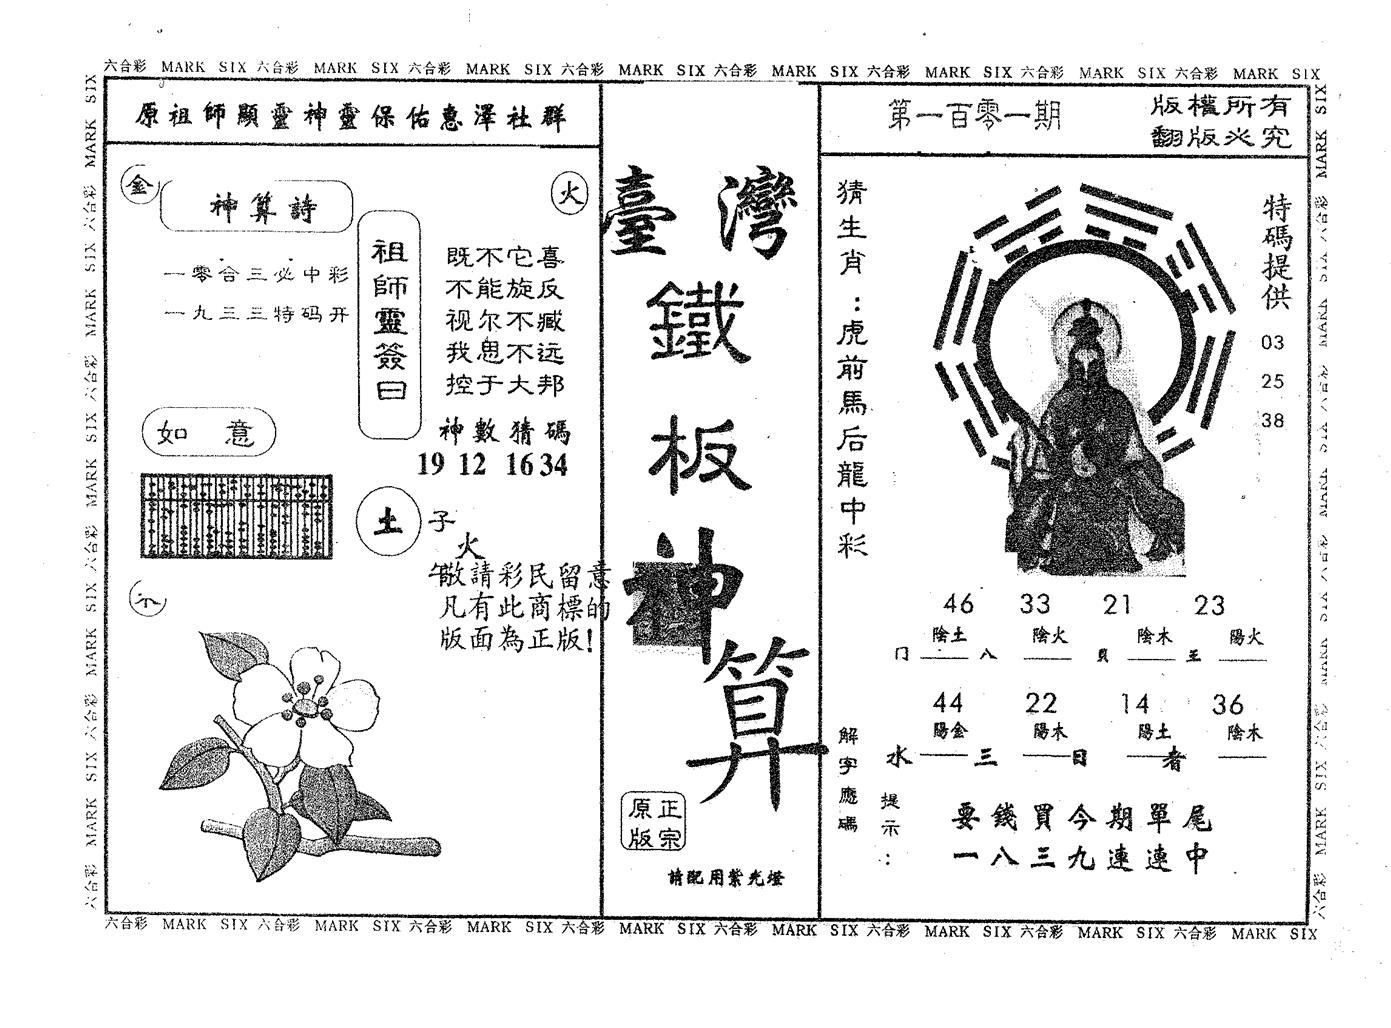 六合彩 MARK SIX 六合彩 MARK SIX 六合彩 MARK SIX 六合彩 MARK SIX 六合彩 MARK SIX 六合彩 MARK SIX 六合彩 MARK SIX 六合彩 MARK SIX
原祖師顯靈神靈保佑惠澤社群
金
火
神算詩
一零合三必中彩
一九三三特码开
祖師靈簽曰
既不它喜
不能旋反
视尔不臧
我思不远
控于大邦
神數猜碼
19 12 16 34
如意
土
子
火
午敬請彩民留意
凡有此商標的
版面為正版!
臺灣
鐵
板
神
算
原正
版宗
請配用紫光燈
第一百零一期
版權所有
翻版必究
猜生肖：虎前馬后龍中彩
特碼提供
03
25
38
46 33 21 23
陰土 陰火 陰木 陽火
门 八 貝 王
44 22 14 36
陽金 陽木 陽土 陰木
水 三 日 者
解字應碼
提示：
要錢買今期單尾
一八三九連連中
六合彩 MARK SIX 六合彩 MARK SIX 六合彩 MARK SIX 六合彩 MARK SIX 六合彩 MARK SIX 六合彩 MARK SIX 六合彩 MARK SIX 六合彩 MARK SIX